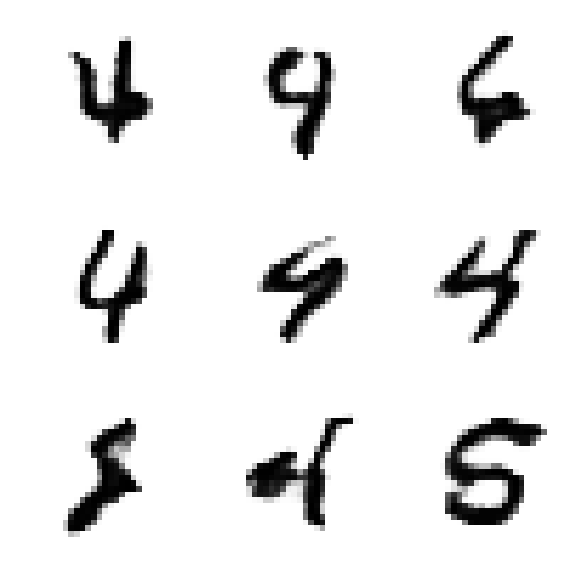 4 9 6
4 9 4
8 4 5